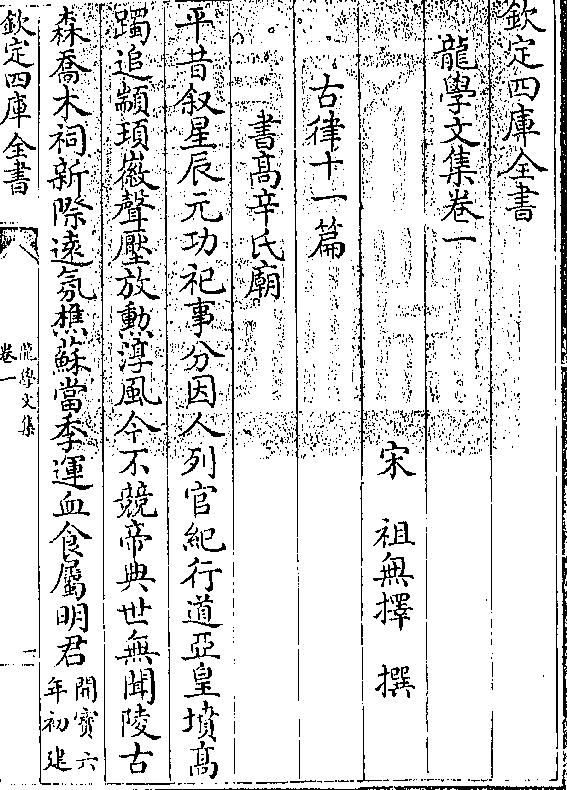 欽定四庫全書
龍學文集卷一
宋 祖無擇 撰
古律十一篇
書髙辛氏廟
平昔叙星辰元功祀事分因人列官紀行道亞皇墳髙
躅追顓頊徽聲壓放勲淳風今不競帝典世無聞陵古
森喬木祠新際遠氛樵蘇當季運血食屬明君開寳六
年初建
欽定四庫全書
龍學文集
卷一
一